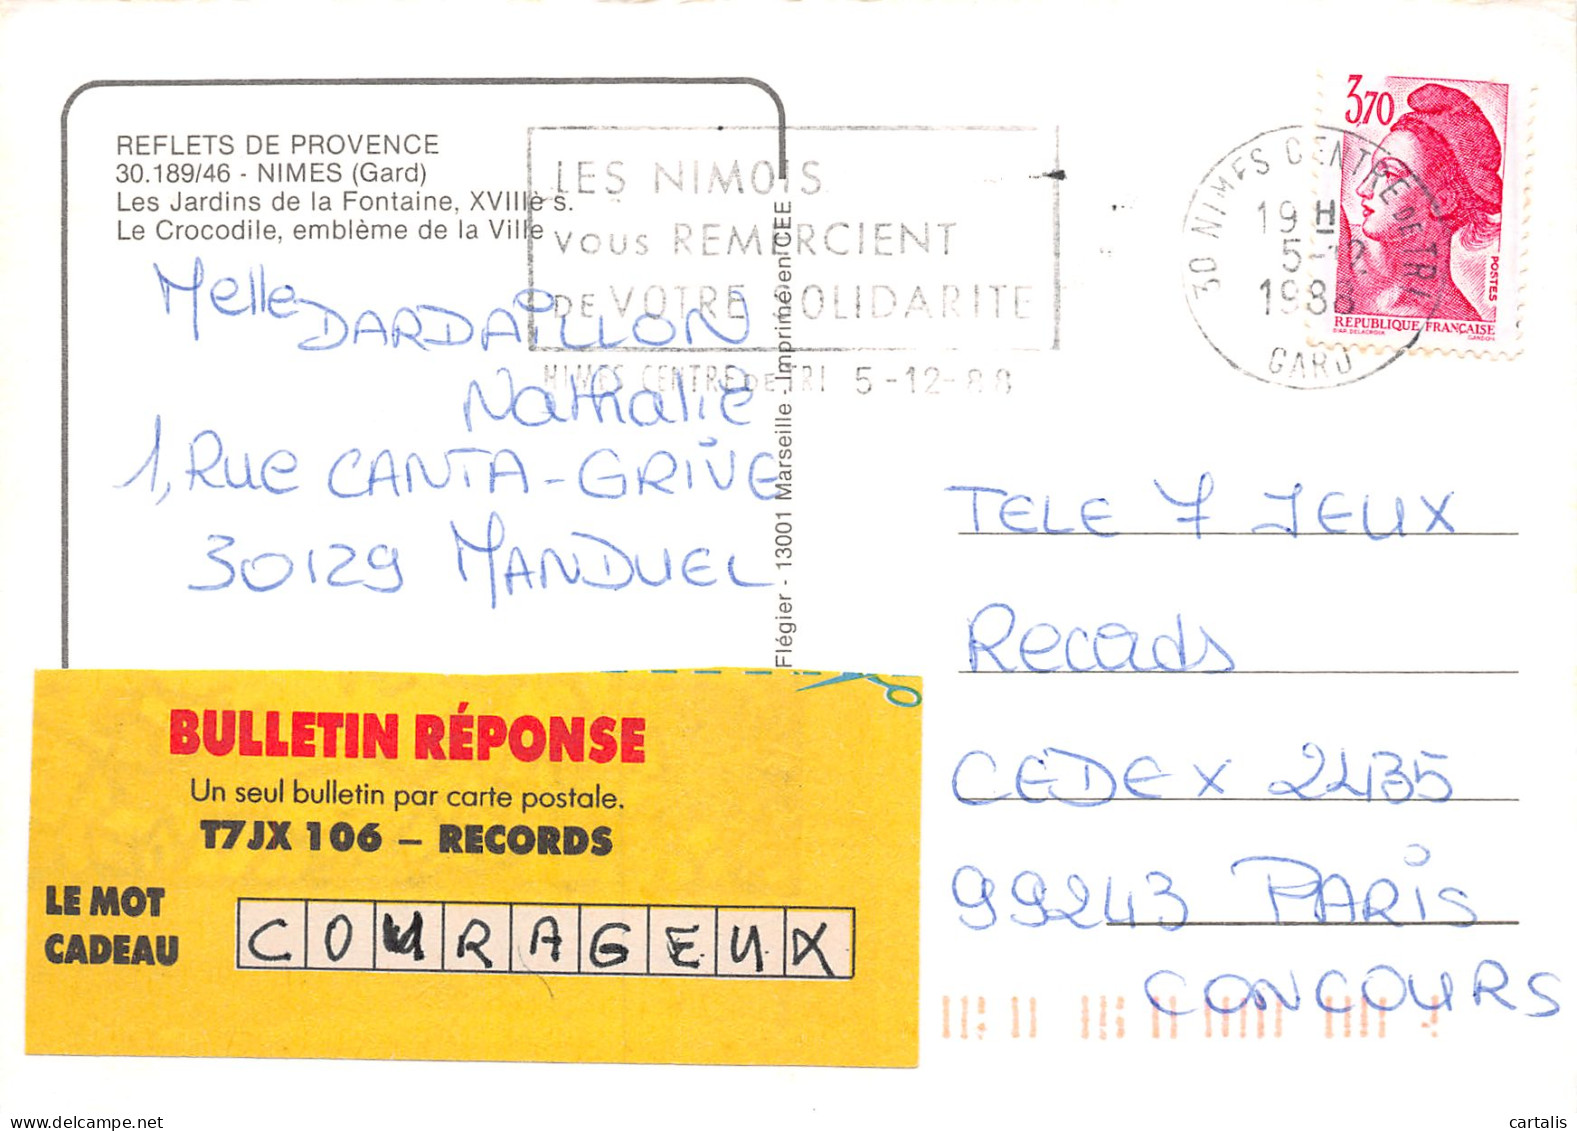 REFLETS DE PROVENCE
30.189/46 - NIMES (Gard)
Les Jardins de la Fontaine, XVIIIè s.
Le Crocodile, emblème de la Ville
LES NIMOIS
VOUS REMERCIENT
DE VOTRE SOLIDARITE
NIMES CENTRE DE TRI 5-12-88
30 NIMES CENTRE DE TRI
19H
5-12
1988
GARD
3,70
POSTES
REPUBLIQUE FRANÇAISE
D'AP. DELACROIX GANDON
Melle DARDAILLON
Nathalie
1, Rue CANTA-GRIVE
30129 MANDUEL
Flégier - 13001 Marseille - Imprimé en CEE
TELE 7 JEUX
Records
CEDEX 2435
99243 PARIS
CONCOURS
BULLETIN RÉPONSE
Un seul bulletin par carte postale.
T7JX 106 – RECORDS
LE MOT
CADEAU
COURAGEUX
cartalis